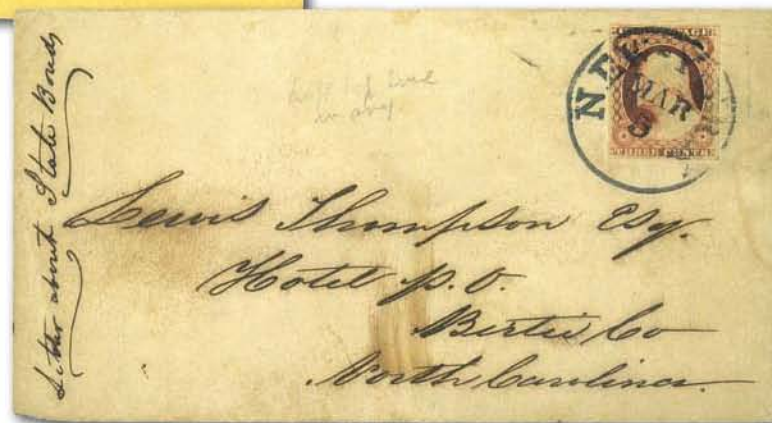 Letter about State Bonds
NEW
MAR
5
THREE CENTS
Lewis Thompson Esq.
Hotel P.O.
Bertie Co
North Carolina.